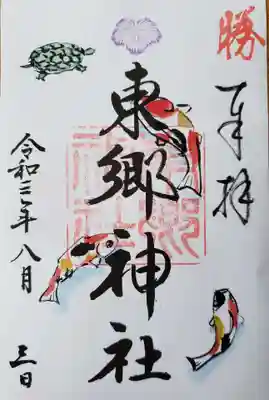 勝
奉拝
東郷神社
令和三年八月三日